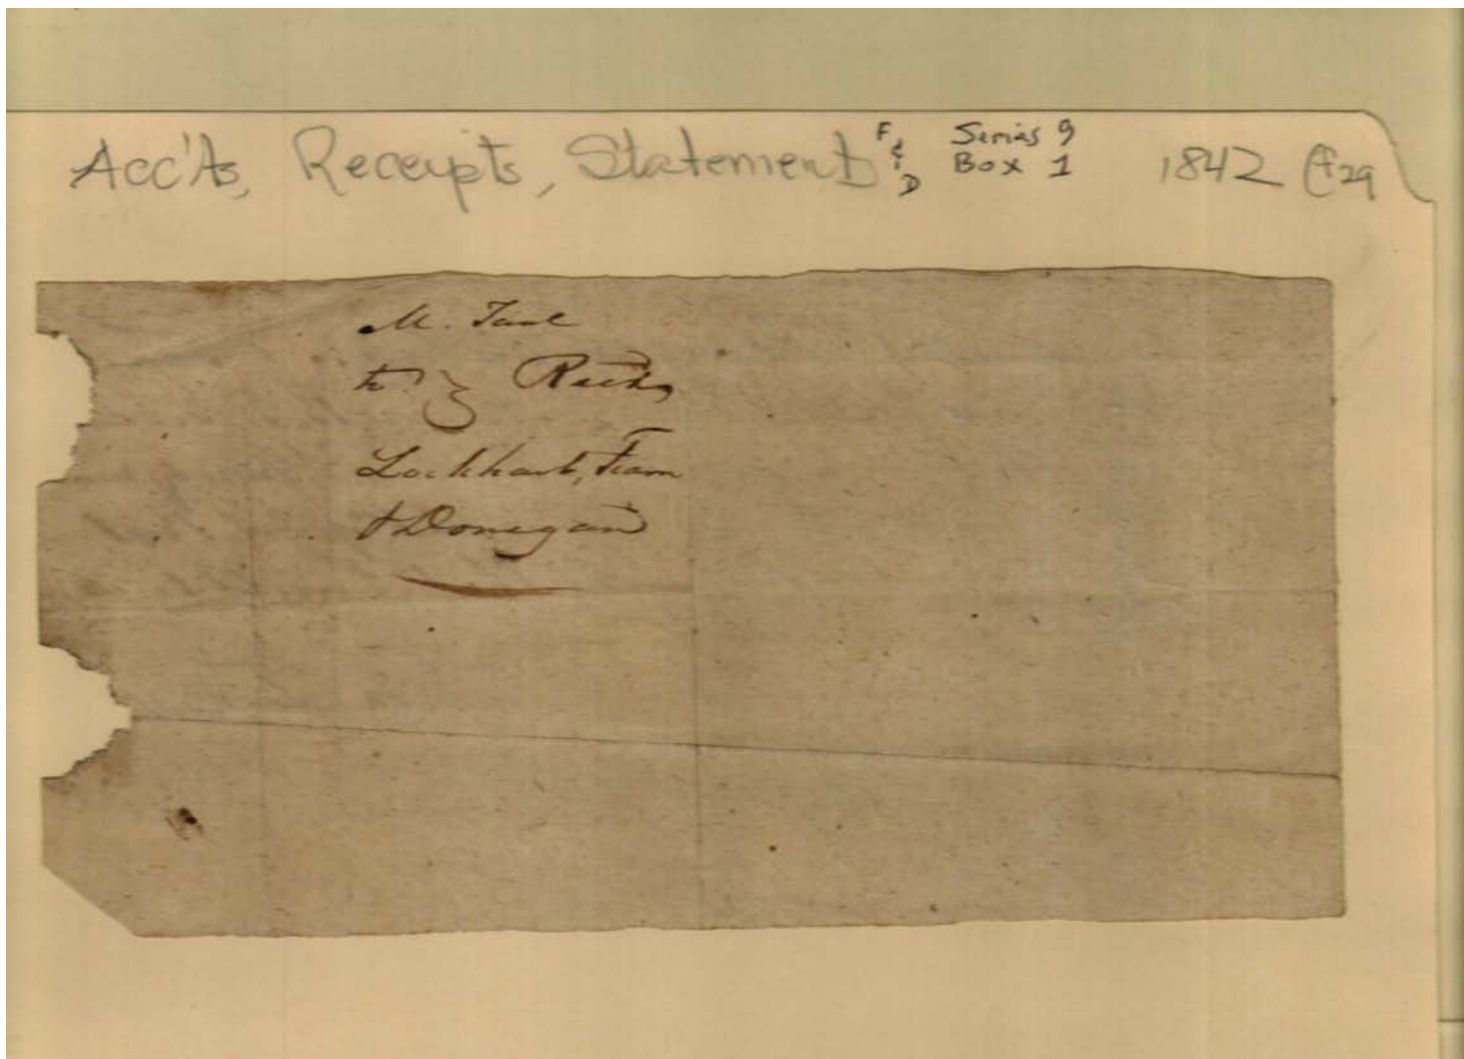 Acc'ts, Receipts, Statements F & D Series 9 Box 1 1842 f29
M. Taul
to
Lockhart, Fearn
& Donegan